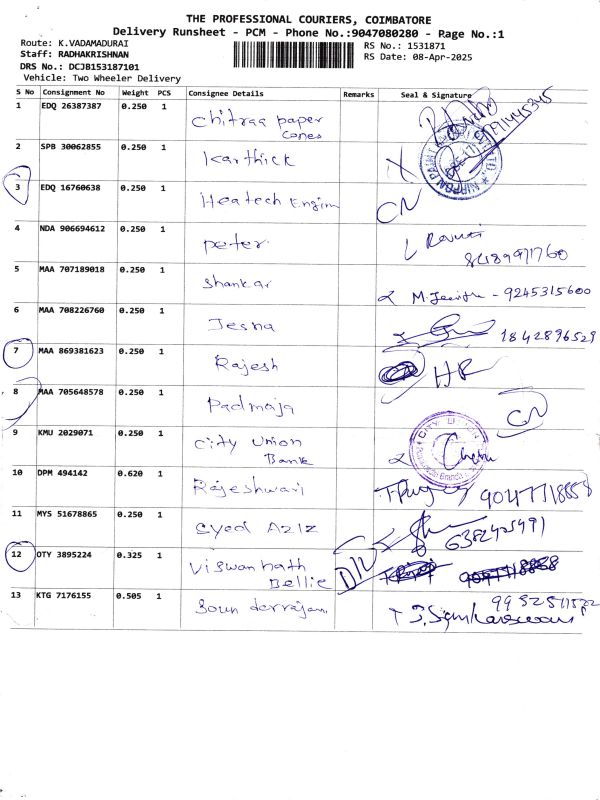 THE PROFESSIONAL COURIERS, COIMBATORE
Delivery Runsheet - PCM - Phone No.:9047080280 - Page No.:1
Route: K.VADAMADURAI
Staff: RADHAKRISHNAN
DRS No.: DCJB153187101
Vehicle: Two Wheeler Delivery
RS No.: 1531871
RS Date: 08-Apr-2025
S No Consignment No Weight PCS Consignee Details Remarks Seal & Signature
1 EDQ 26387387 0.250 1 Chitraa paper
Cones
2 SPB 30062855 0.250 1 Karthick
3 EDQ 16760638 0.250 1 Heatech Engin CN
4 NDA 906694612 0.250 1 peter
5 MAA 707189018 0.250 1 Shankar - 9245315600
6 MAA 708226760 0.250 1 Jesna 1842896529
7 MAA 869381623 0.250 1 Rajesh
8 MAA 705648578 0.250 1 Padmaja CN
9 KMU 2029071 0.250 1 City Union
Bank
10 DPM 494142 0.620 1 Rajeshwari
11 MYS 51678865 0.250 1 Syed Aziz 6382425491
12 OTY 3895224 0.325 1 Viswanhath
Bellie
13 KTG 7176155 0.505 1 Soundarrajan